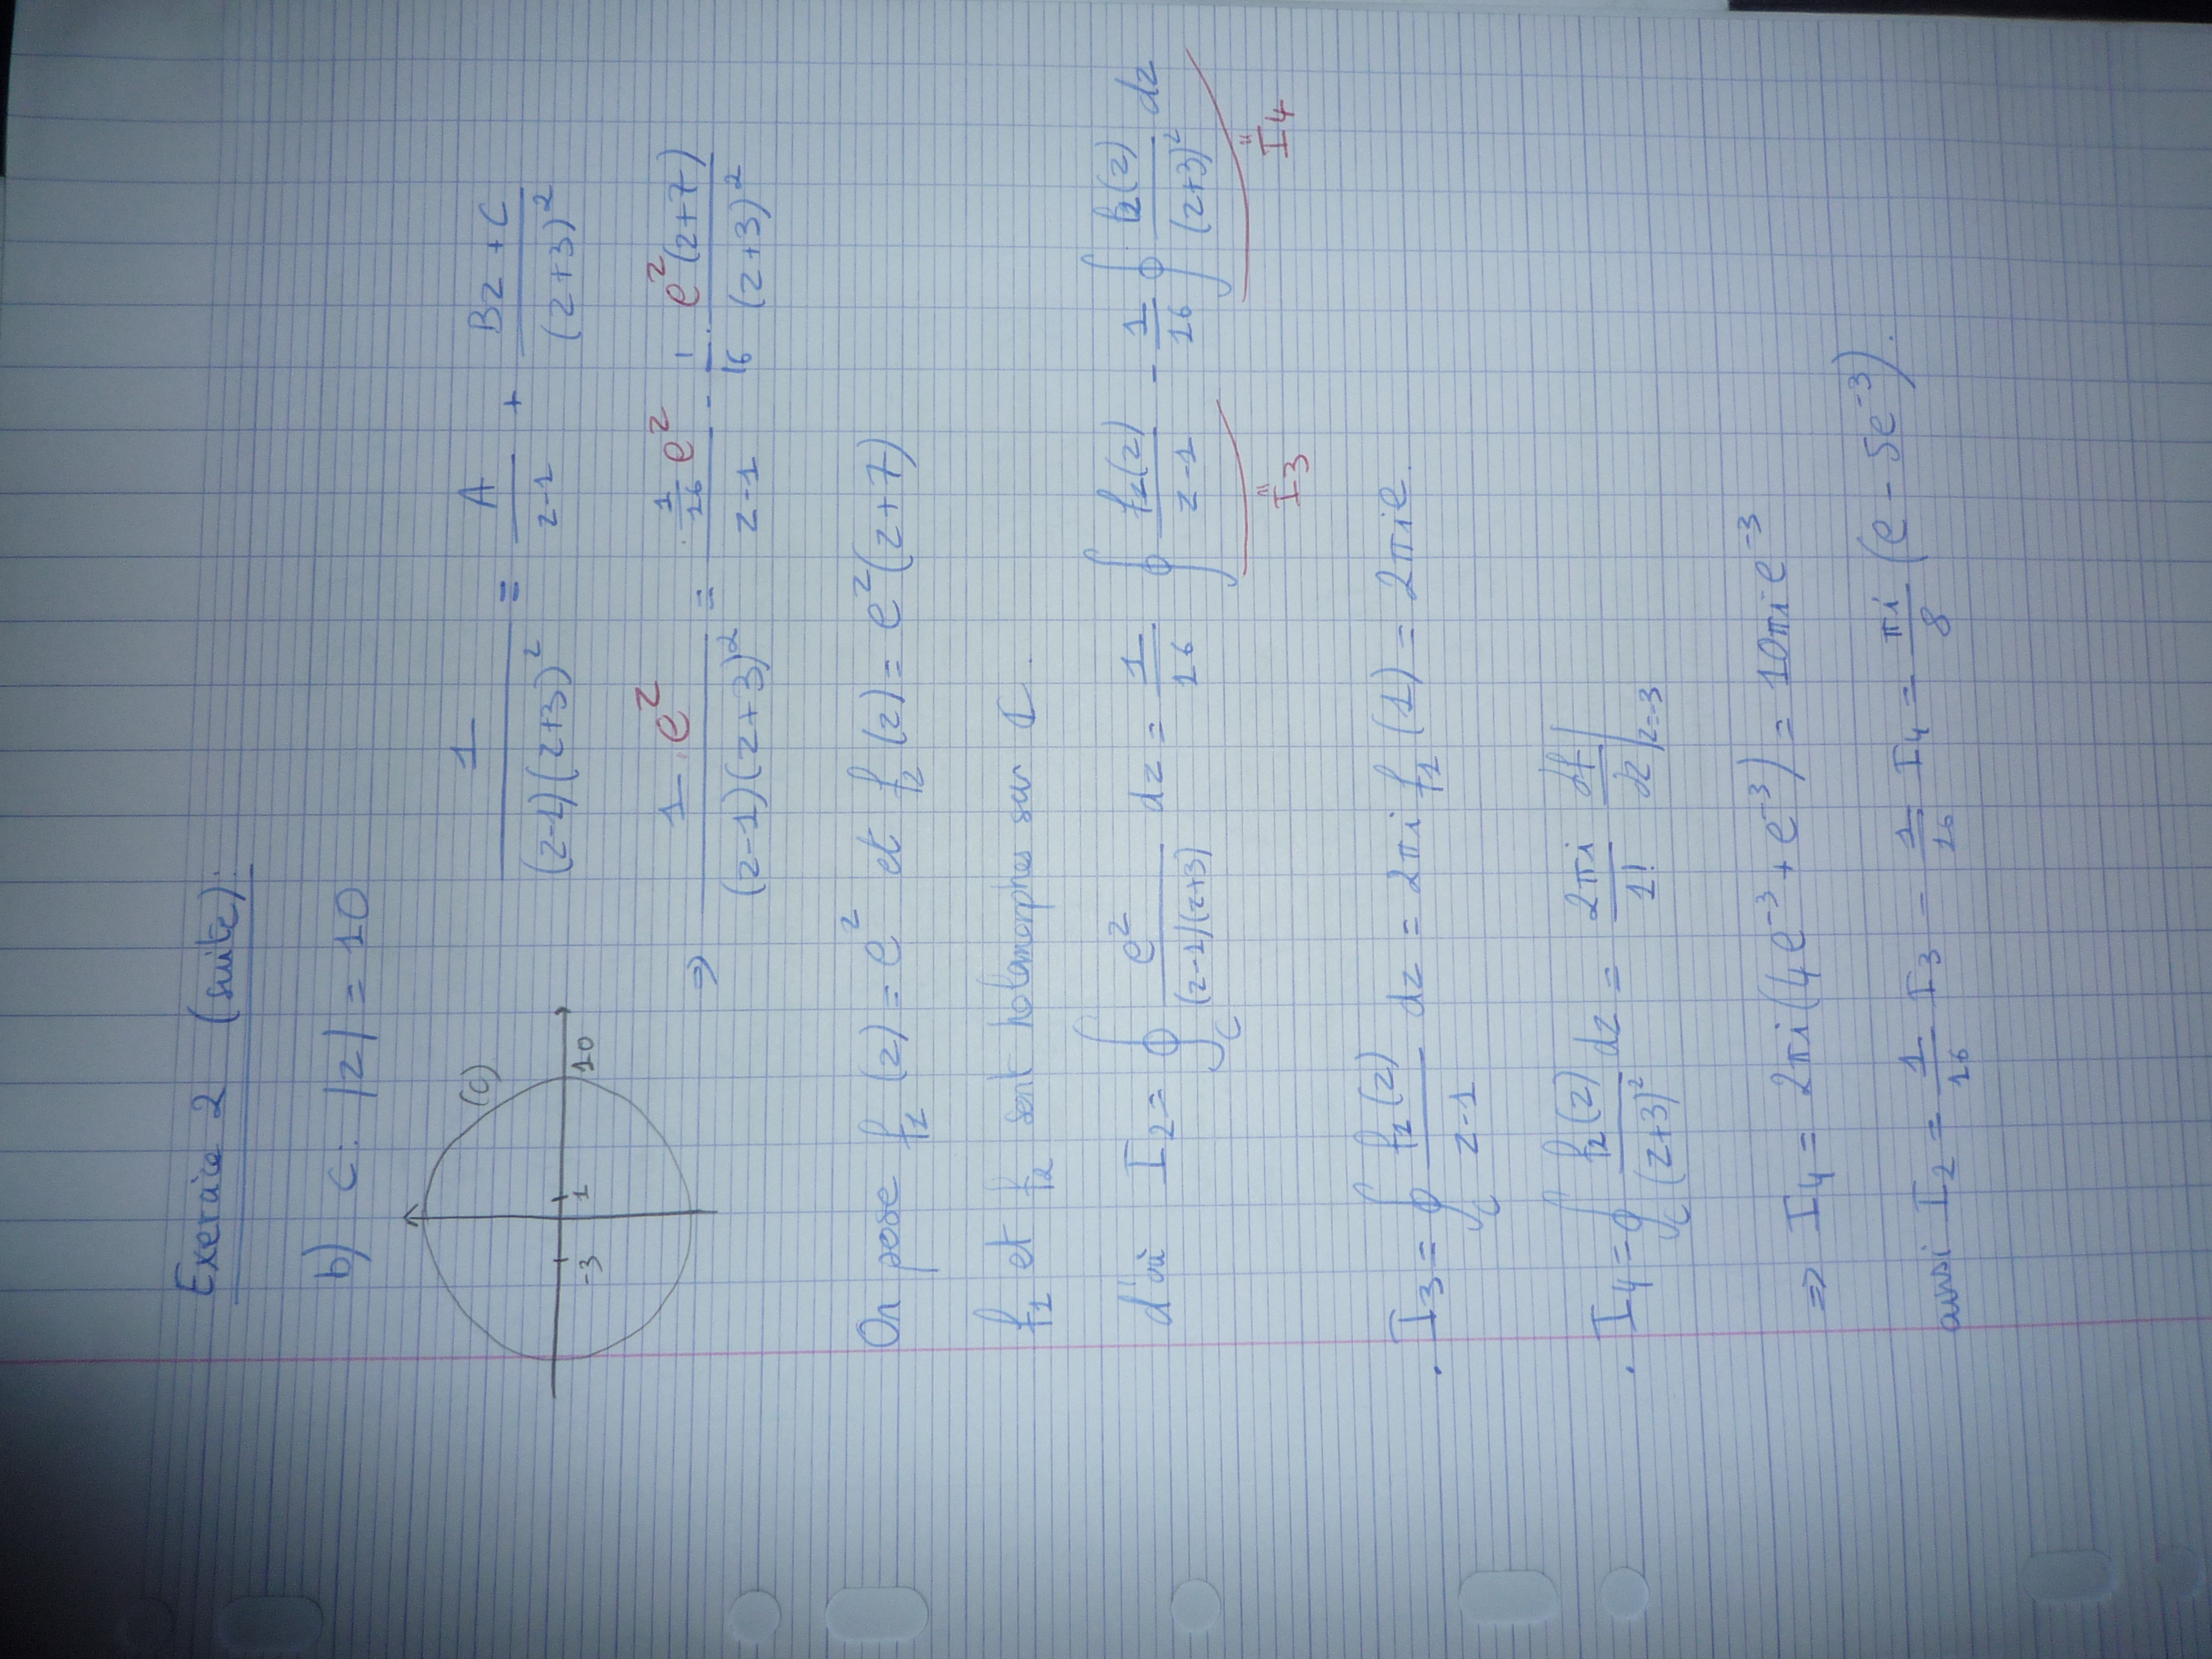 Exercice 2 (suite):
b) C: |z| = 10
(C)
-3 1 10
1/((z-1)(z+3)²) = A/(z-1) + (Bz+C)/(z+3)²
⇒ 1·e^z/((z-1)(z+3)²) = (1/16 e^z)/(z-1) - 1/16 · e^z(z+7)/(z+3)²
On pose f₁(z) = e^z et f₂(z) = e^z(z+7)
f₁ et f₂ sont holomorphes sur C.
d'où I₂ = ∮_C e^z/((z-1)(z+3)) dz = 1/16 ∮ f₁(z)/(z-1) - 1/16 ∮ f₂(z)/(z+3)² dz
"I₃ "I₄
· I₃ = ∮_C f₁(z)/(z-1) dz = 2πi f₁(1) = 2πie.
· I₄ = ∮_C f₂(z)/(z+3)² dz = 2πi/1! df/dz|z=-3
⇒ I₄ = 2πi(4e⁻³ + e⁻³) = 10πie⁻³
ainsi I₂ = 1/16 I₃ - 1/16 I₄ = πi/8 (e - 5e⁻³).